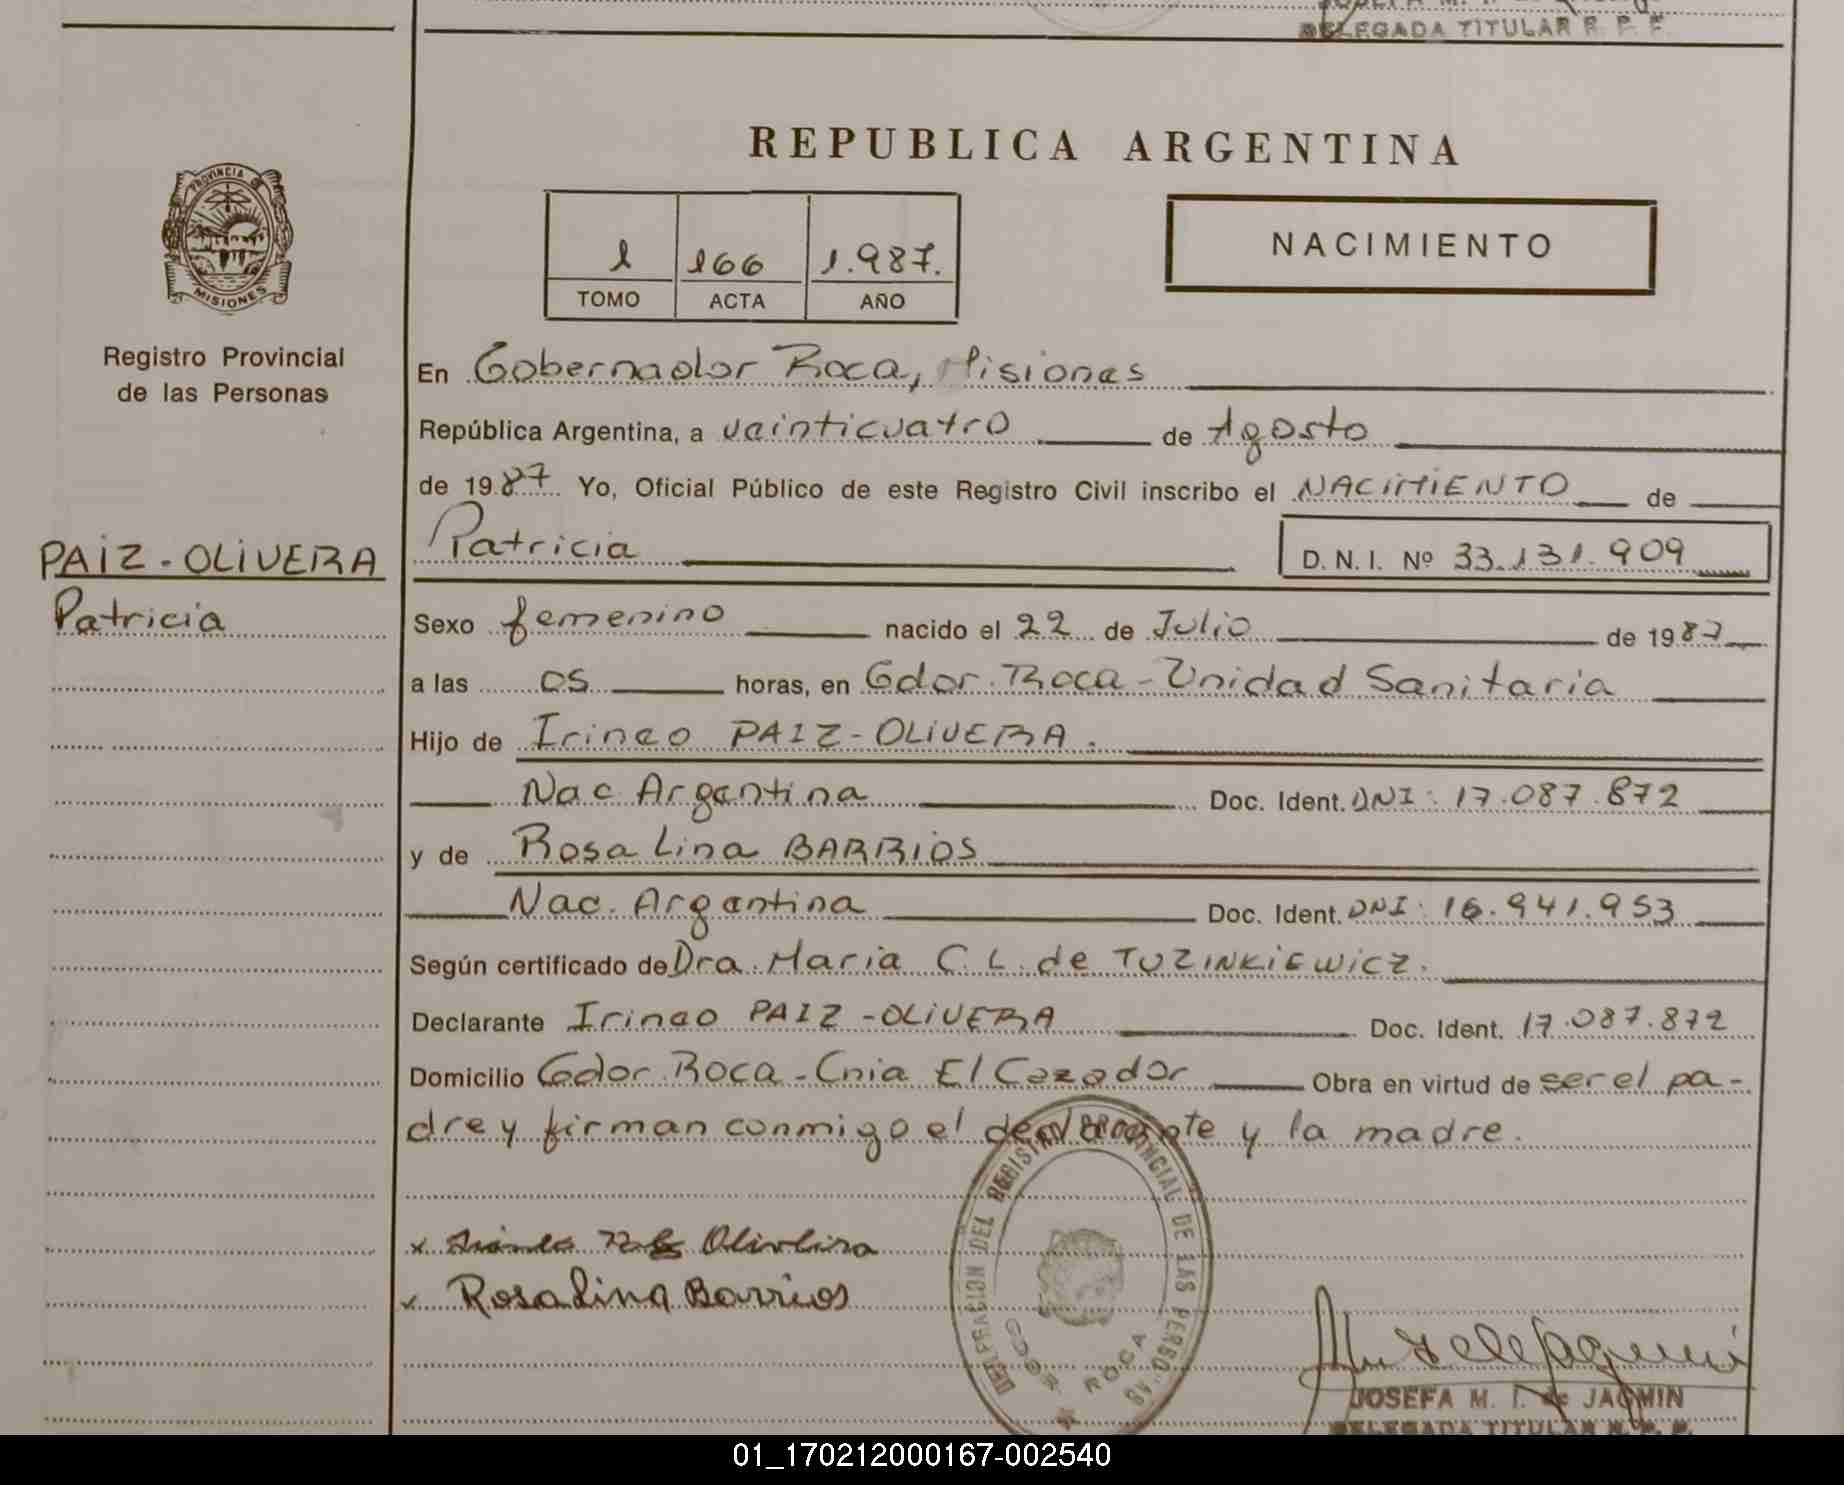 DELEGADA TITULAR R. P. P.
REPUBLICA ARGENTINA
PROVINCIA DE
MISIONES
1 166 1.987.
TOMO ACTA AÑO
NACIMIENTO
Registro Provincial
de las Personas
En Gobernador Roca, Misiones
República Argentina, a veinticuatro de Agosto
de 1987 Yo, Oficial Público de este Registro Civil inscribo el NACIMIENTO de
PAIZ-OLIVERA
Patricia
Patricia D. N. I. Nº 33.131.909
Sexo femenino nacido el 22 de Julio de 1987
a las 05 horas, en Gdor. Roca - Unidad Sanitaria
Hijo de Irineo PAIZ-OLIVERA.
Nac Argentina Doc. Ident. DNI: 17.087.872
y de Rosa Lina BARRIOS
Nac. Argentina Doc. Ident. DNI: 16.941.953
Según certificado de Dra. Maria C. L. de TUZINKIEWICZ.
Declarante Irineo PAIZ-OLIVERA Doc. Ident. 17.087.872
Domicilio Gdor. Roca - Cnia El Cazador Obra en virtud de ser el pa-
dre y firman conmigo el declarante y la madre.
x Oliveira
x Rosalina Barrios
DELEGACION DEL REGISTRO PROVINCIAL DE LAS PERSONAS
GDOR. ROCA
JOSEFA M. I. de JAQMIN
DELEGADA TITULAR R. P. P.
01_170212000167-002540